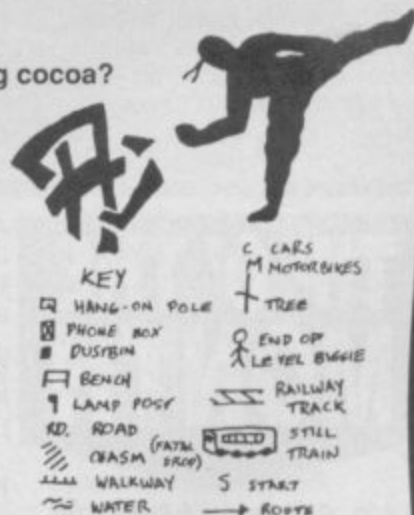 g cocoa?
KEY
HANG-ON POLE
PHONE BOX
DUSTBIN
BENCH
LAMP POST
RD. ROAD
CHASM (FATAL DROP)
WALKWAY
WATER
C CARS
M MOTORBIKES
TREE
END OF
LEVEL BIGGIE
RAILWAY
TRACK
STILL
TRAIN
S START
ROUTE